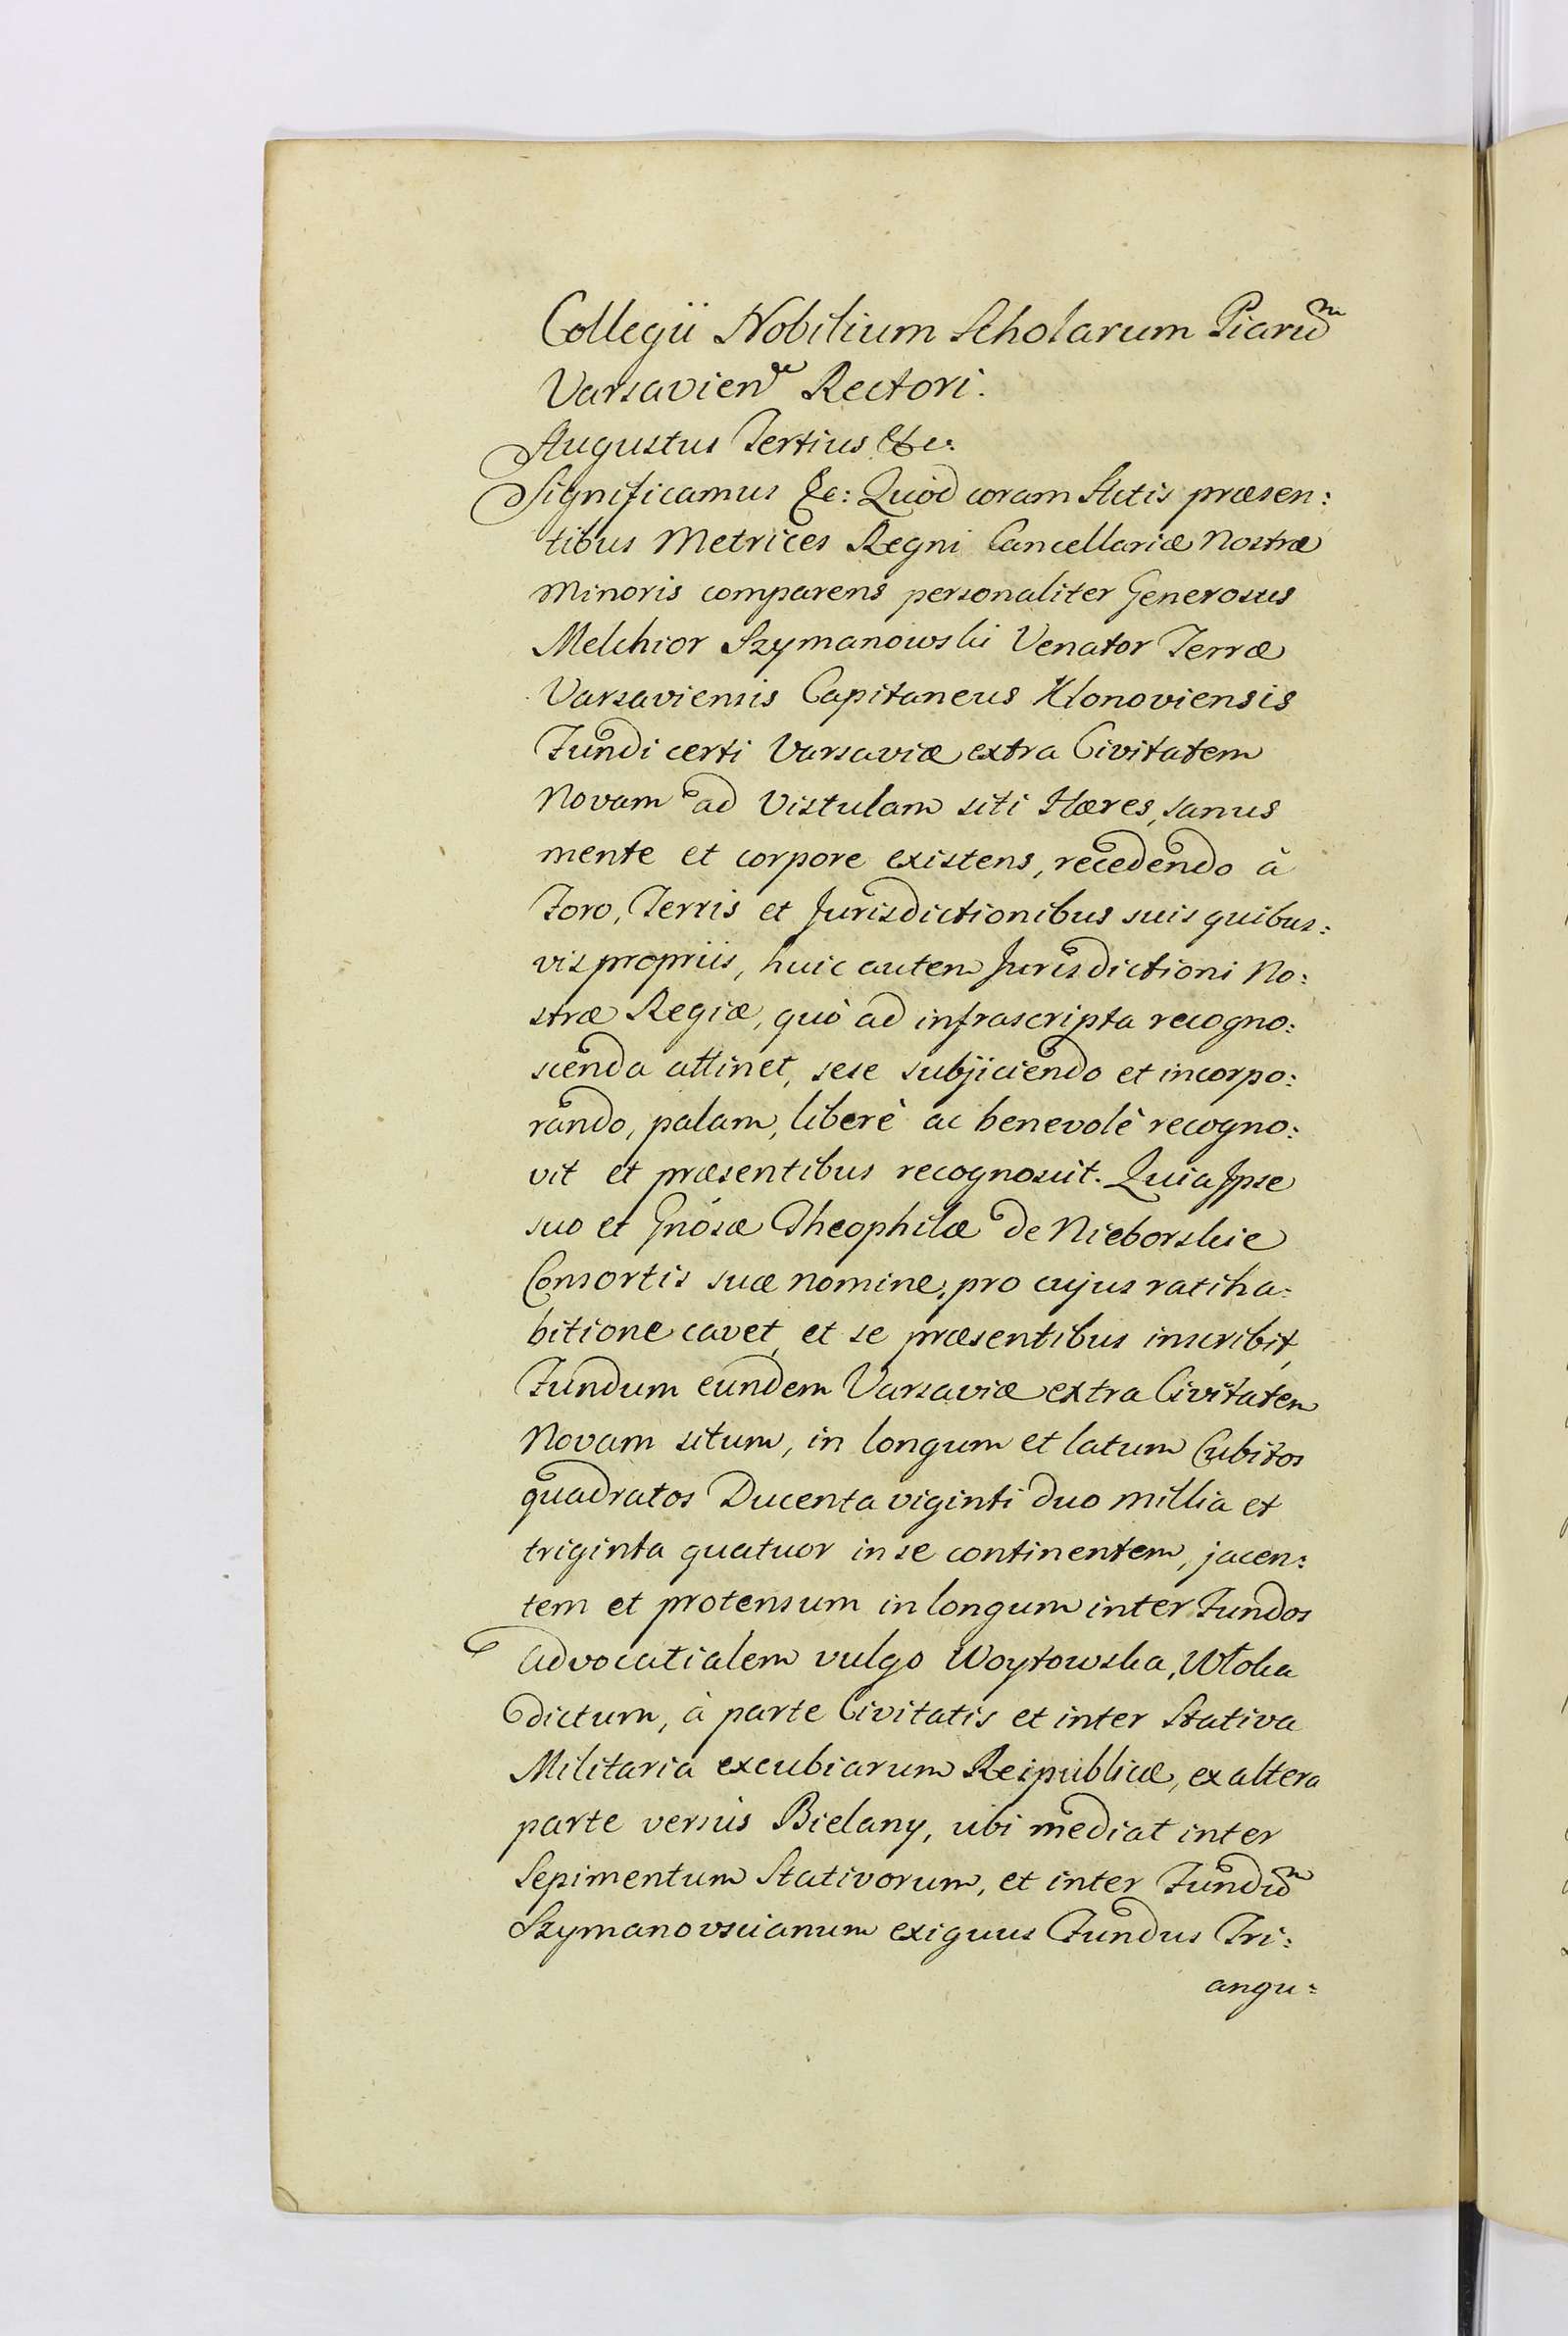 Collegii Nobilium Scholarum Piaru͠m
Varsavien͠ Rectori.
Augustus Tertius &c:
Significamus &c: Quòd coram Actis præsen:
tibus Metrices Regni Cancellariæ Nostræ
Minoris comparens personaliter Generosus
Melchior Szymanowski Venator Terræ
Varsaviensis Capitaneus Klonoviensis
Fundi certi Varsaviæ extra Civitatem
Novam ad Vistulam siti Hæres, sanus
mente et corpore existens, recedendo à
Foro, Terris et Jurisdictionibus suis quibus:
vis propriis, huic autem Jurisdictioni No:
stræ Regiæ, quò ad infrascripta recogno:
scenda attinet, sese subjiciendo et incorpo:
rando, palam, liberè ac benevolè recogno:
vit et præsentibus recognoscit. Quia Ipse
suo et Gnósæ Theophilæ de Nieborskie
Consortis suæ nomine, pro cujus ratiha:
bitione cavet, et se præsentibus inscribit,
Fundum eundem Varsaviæ extra Civitatem
Novam situm, in longum et latum Cubitos
quadratos Ducenta viginti duo millia et
triginta quatuor in se continentem, jacen:
tem et protensum in longum inter Fundos
advocatialem vulgo Woytowska, Włoka
dictum, à parte Civitatis et inter Stativa
Militaria excubiarum Reipublicæ, ex altera
parte versùs Bielany, ubi mediat inter
Sepimentum Stativorum, et inter Fundu͠m
Szymanovscianum exiguus Fundus Tri:
angu: